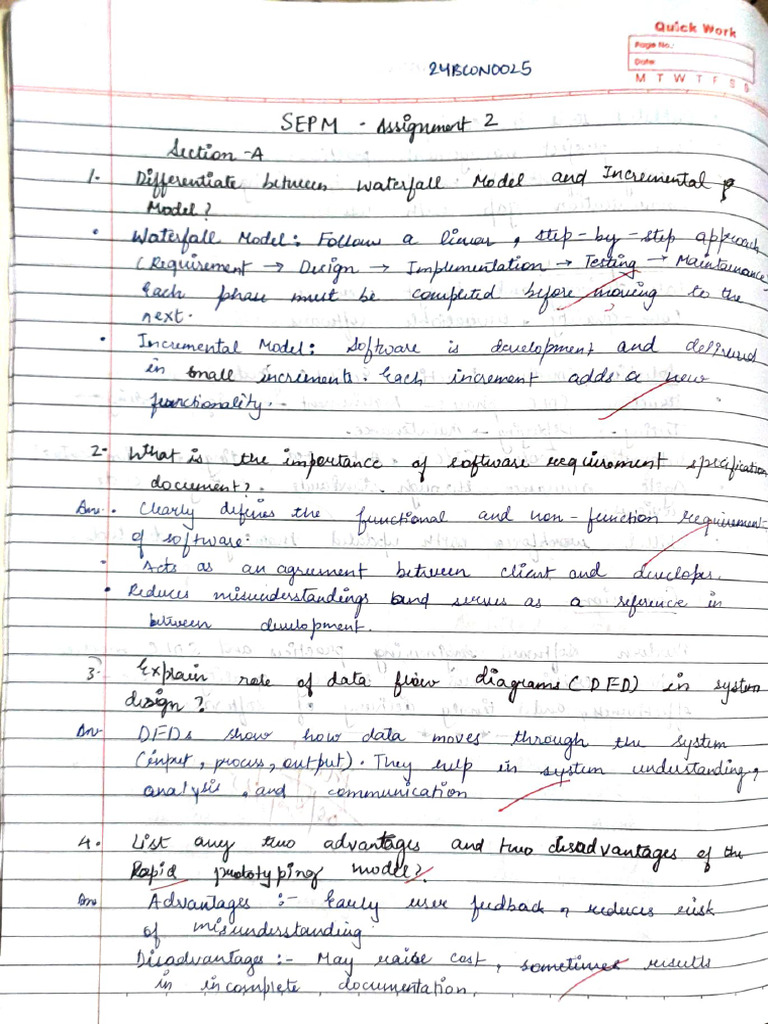 Quick Work
Page No.:
Date:
M T W T F S S
24BCON0025
SEPM - Assignment 2
Section - A
1. Differentiate between Waterfall Model and Incremental
Model?
• Waterfall Model: Follow a linear, step-by-step approach
(Requirement → Design → Implementation → Testing → Maintainance
Each phase must be completed before moving to the
next.
• Incremental Model: Software is development and delivered
in small increments. Each increment adds a new
functionality.
2. What is the importance of software requirement specification
document?
Ans. Clearly defines the functional and non-function requirement
of software:
• Acts as an agreement between client and developer.
• Reduces misunderstandings and serves as a reference in
between development.
3. Explain role of data flow diagrams (DFD) in system
design?
Ans DFDs show how data moves through the system
(input, process, output). They help in system understanding,
analysis, and communication
4. List any two advantages and two disadvantages of the
Rapid prototyping model?
Ans Advantages :- Early user feedback, reduces risk
of misunderstanding
Disadvantages :- May raise cost, sometimes results
in incomplete documentation.